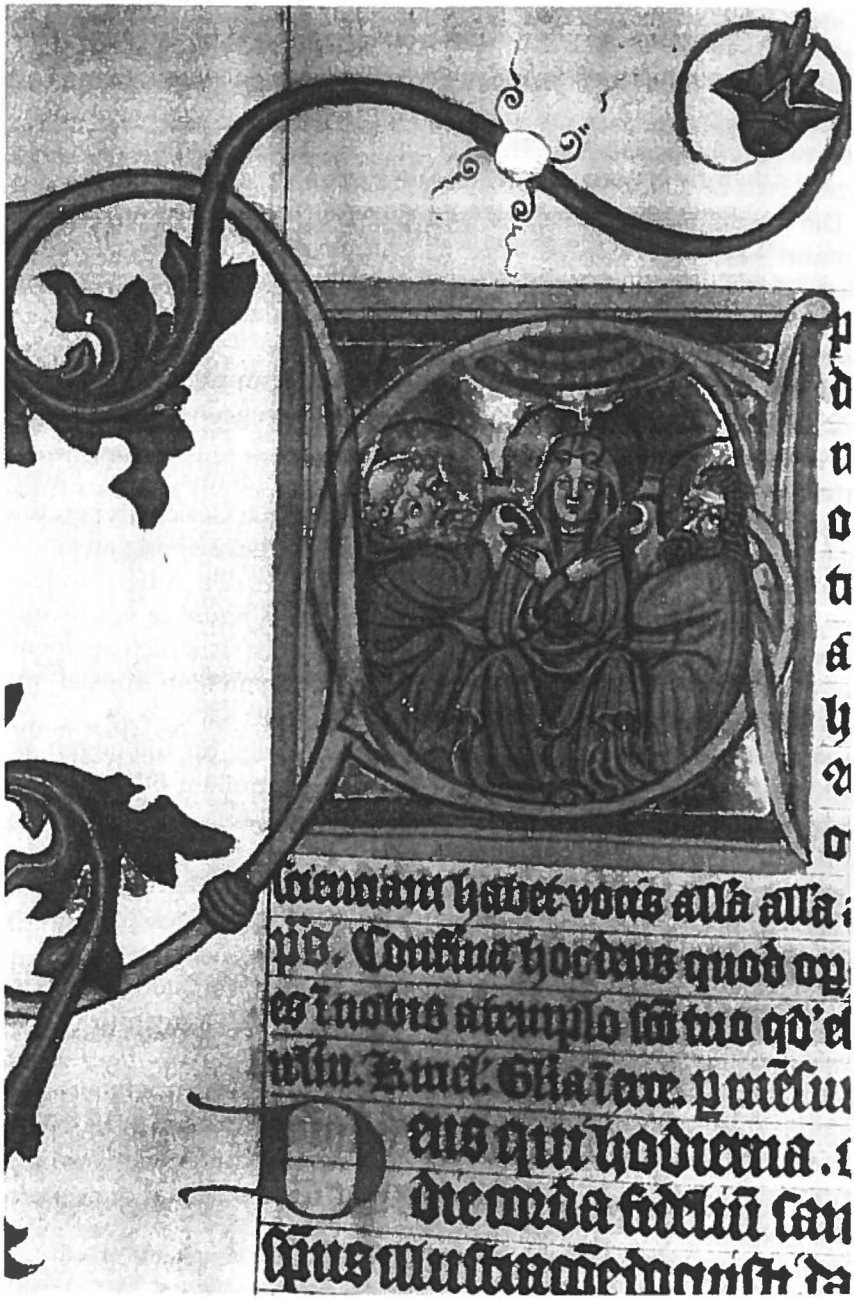 p
d
n
o
ti
a
h
a
scientiam habet vocis alla alla a
ps. Confirma hoc deus quod op
es i nobis a templo sco tuo qd' e
irlm. Kyriel. Glia i terre. p
D eus qui hodierna .
die corda fideliū san
sp̄us illustracōe docuisti da